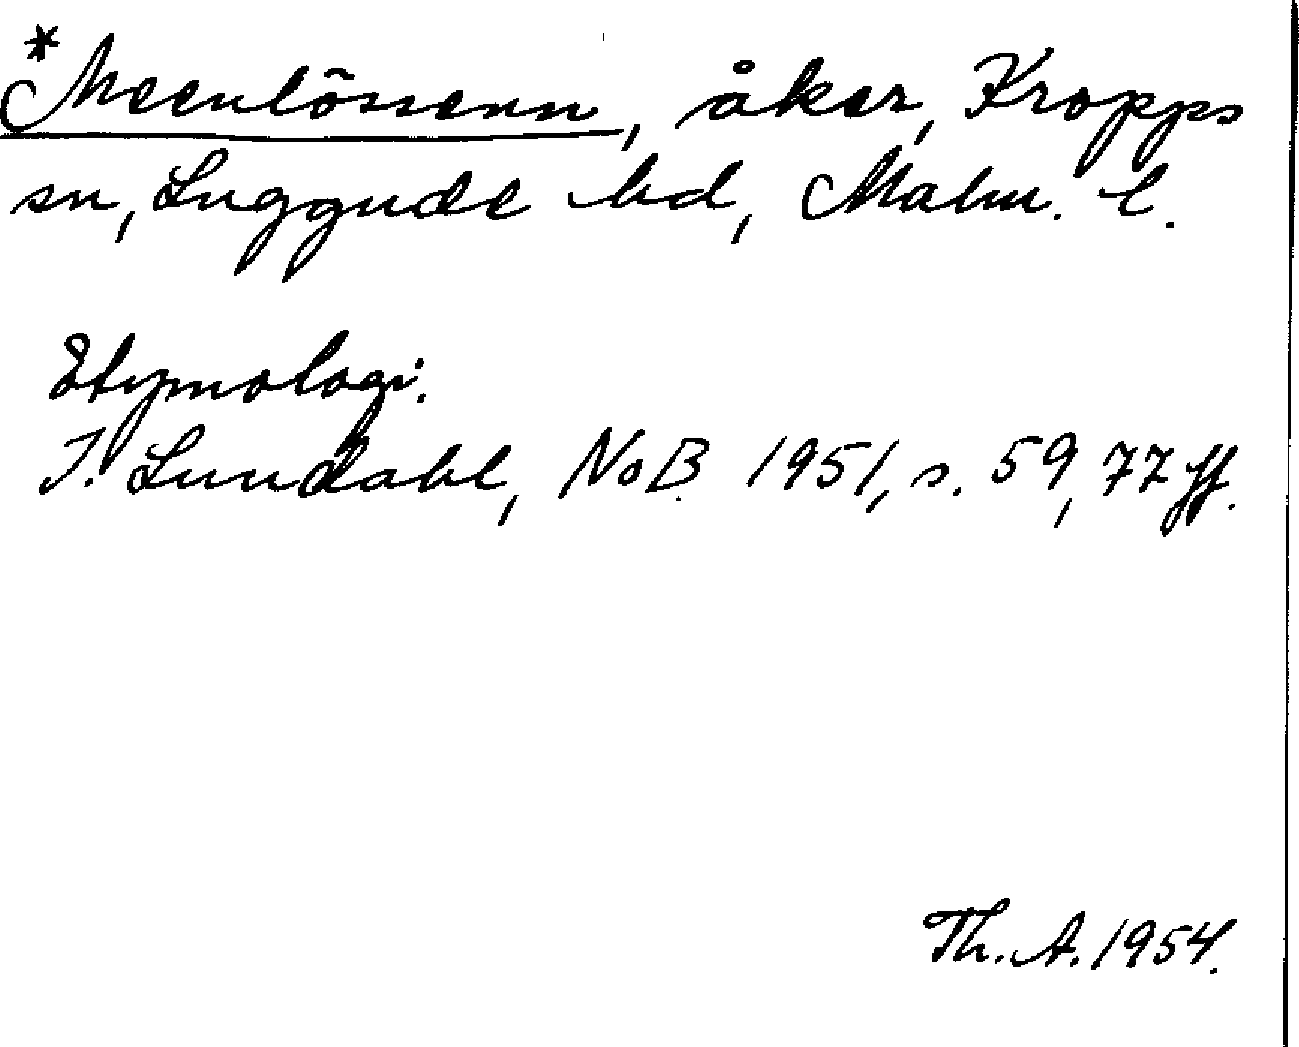 *Meenlõssenn, åker, Kropps
sn, Luggude hd, Malm. l.
Etymologi.
I. Lundahl, NoB 1951, s. 59, 77 ff.
Th. A. 1954.